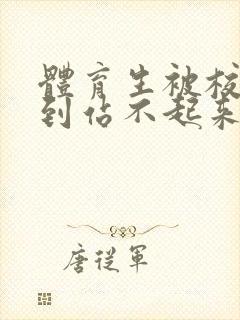 體育生被校
到佔不起来
唐從軍